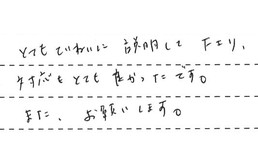 とてもていねいに説明して下さり、
対応もとても良かったです。
また、お願いします。